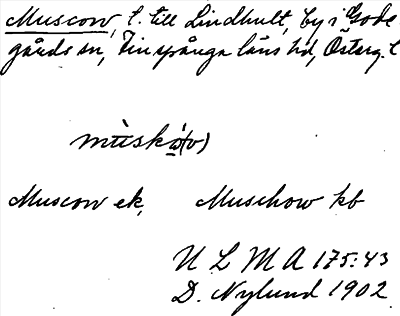 Muscow, t. till Lindhult, by i Gode
gårds sn, Finspånga läns hd, Österg. l
mùskò(v)
Muscow ek, Muschow kb
U L M A 175:43
D. Nylund 1902.